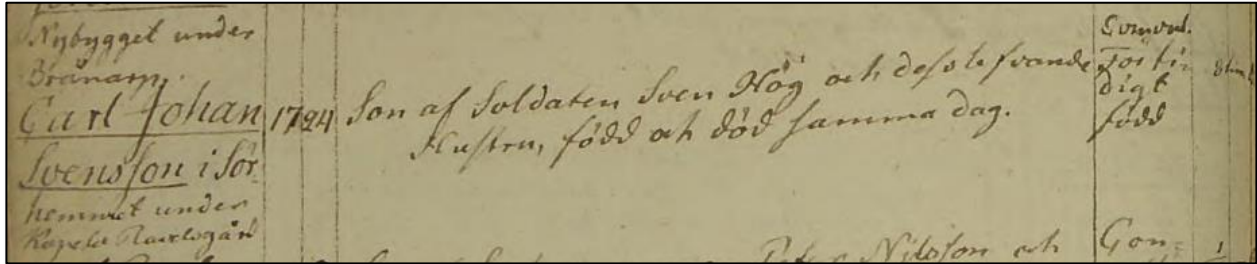 Nybygget under
Brånarp.
Carl Johan
Svensson i Sör-
hemmet under
1794
Son af Soldaten Sven Hög och dess lefvande
Hustru, född och död samma dag.
Förti-
digt
född
Peter Nilsson och
Gon=
1